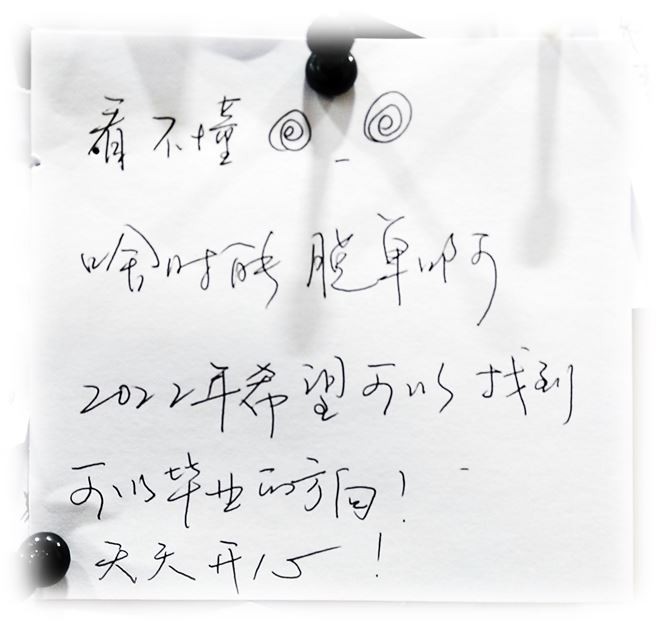 看不懂 @_@
啥时能脱单啊
2022年希望可以找到
可以毕业的方向！
天天开心！